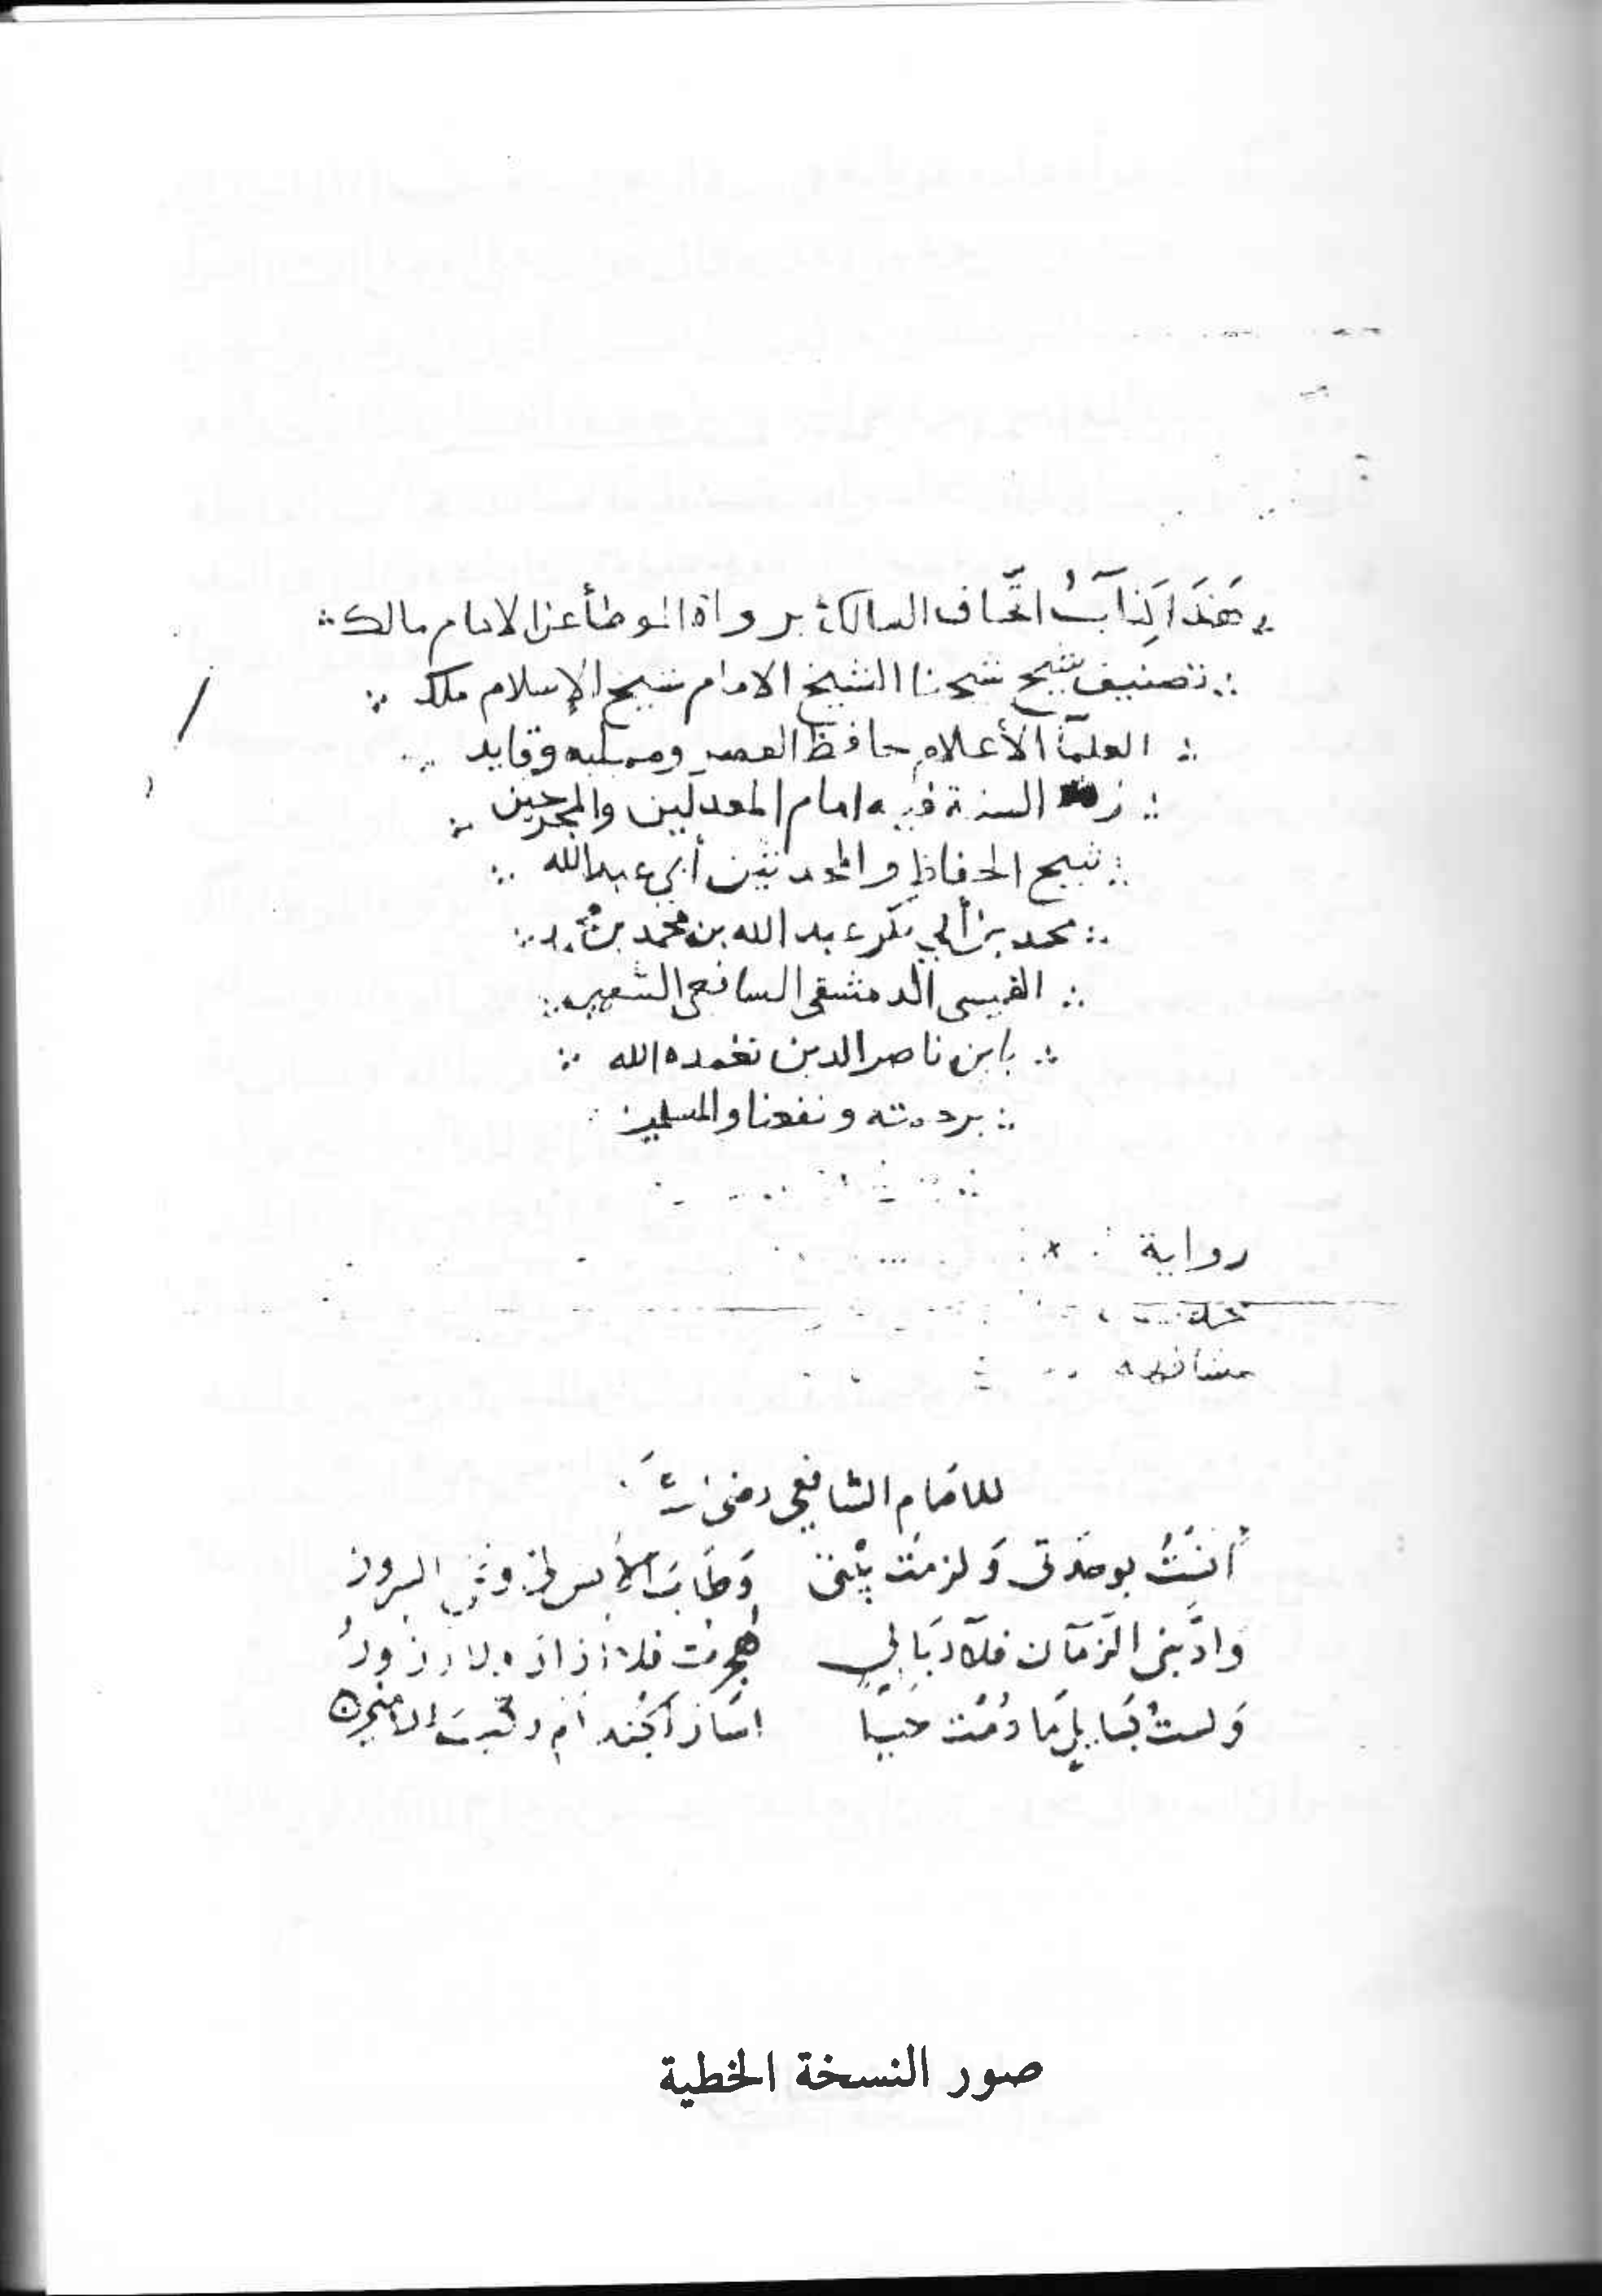 هَذَا كِتَابُ اتحَّاف السالك برواة الموطأ عن الامام مالك
تصنيف شيخ شيخنا الشيخ الامام شيخ الإسلام ملك
العلمآ الأعلام حافظ العصر وقايد
السنة فيه امام المعدلين والمجرحين
شيخ الحفاظ والمحدثين أبي عبد الله
محمد بن أبي بكر عبد الله بن محمد بن
القيسي الدمشقي الشافعي الشهير
بابن ناصر الدين تغمده الله
برحمته ونفعنا والمسلمين
رواية
للامَام الشافِعي رضي
أنِسْتُ بوحْدَتي وَلزمتُ بيْتي وَطَابَ الأنس لي
وَادَّبني الزّمَان فلَا ابَالي هُجرتُ فلا ازار ولا ازورُ
وَلستُ بسَايلٍ مَا دُمْت حَيًا اسَار الجُند ام ركبَ الامير
صور النسخة الخطية